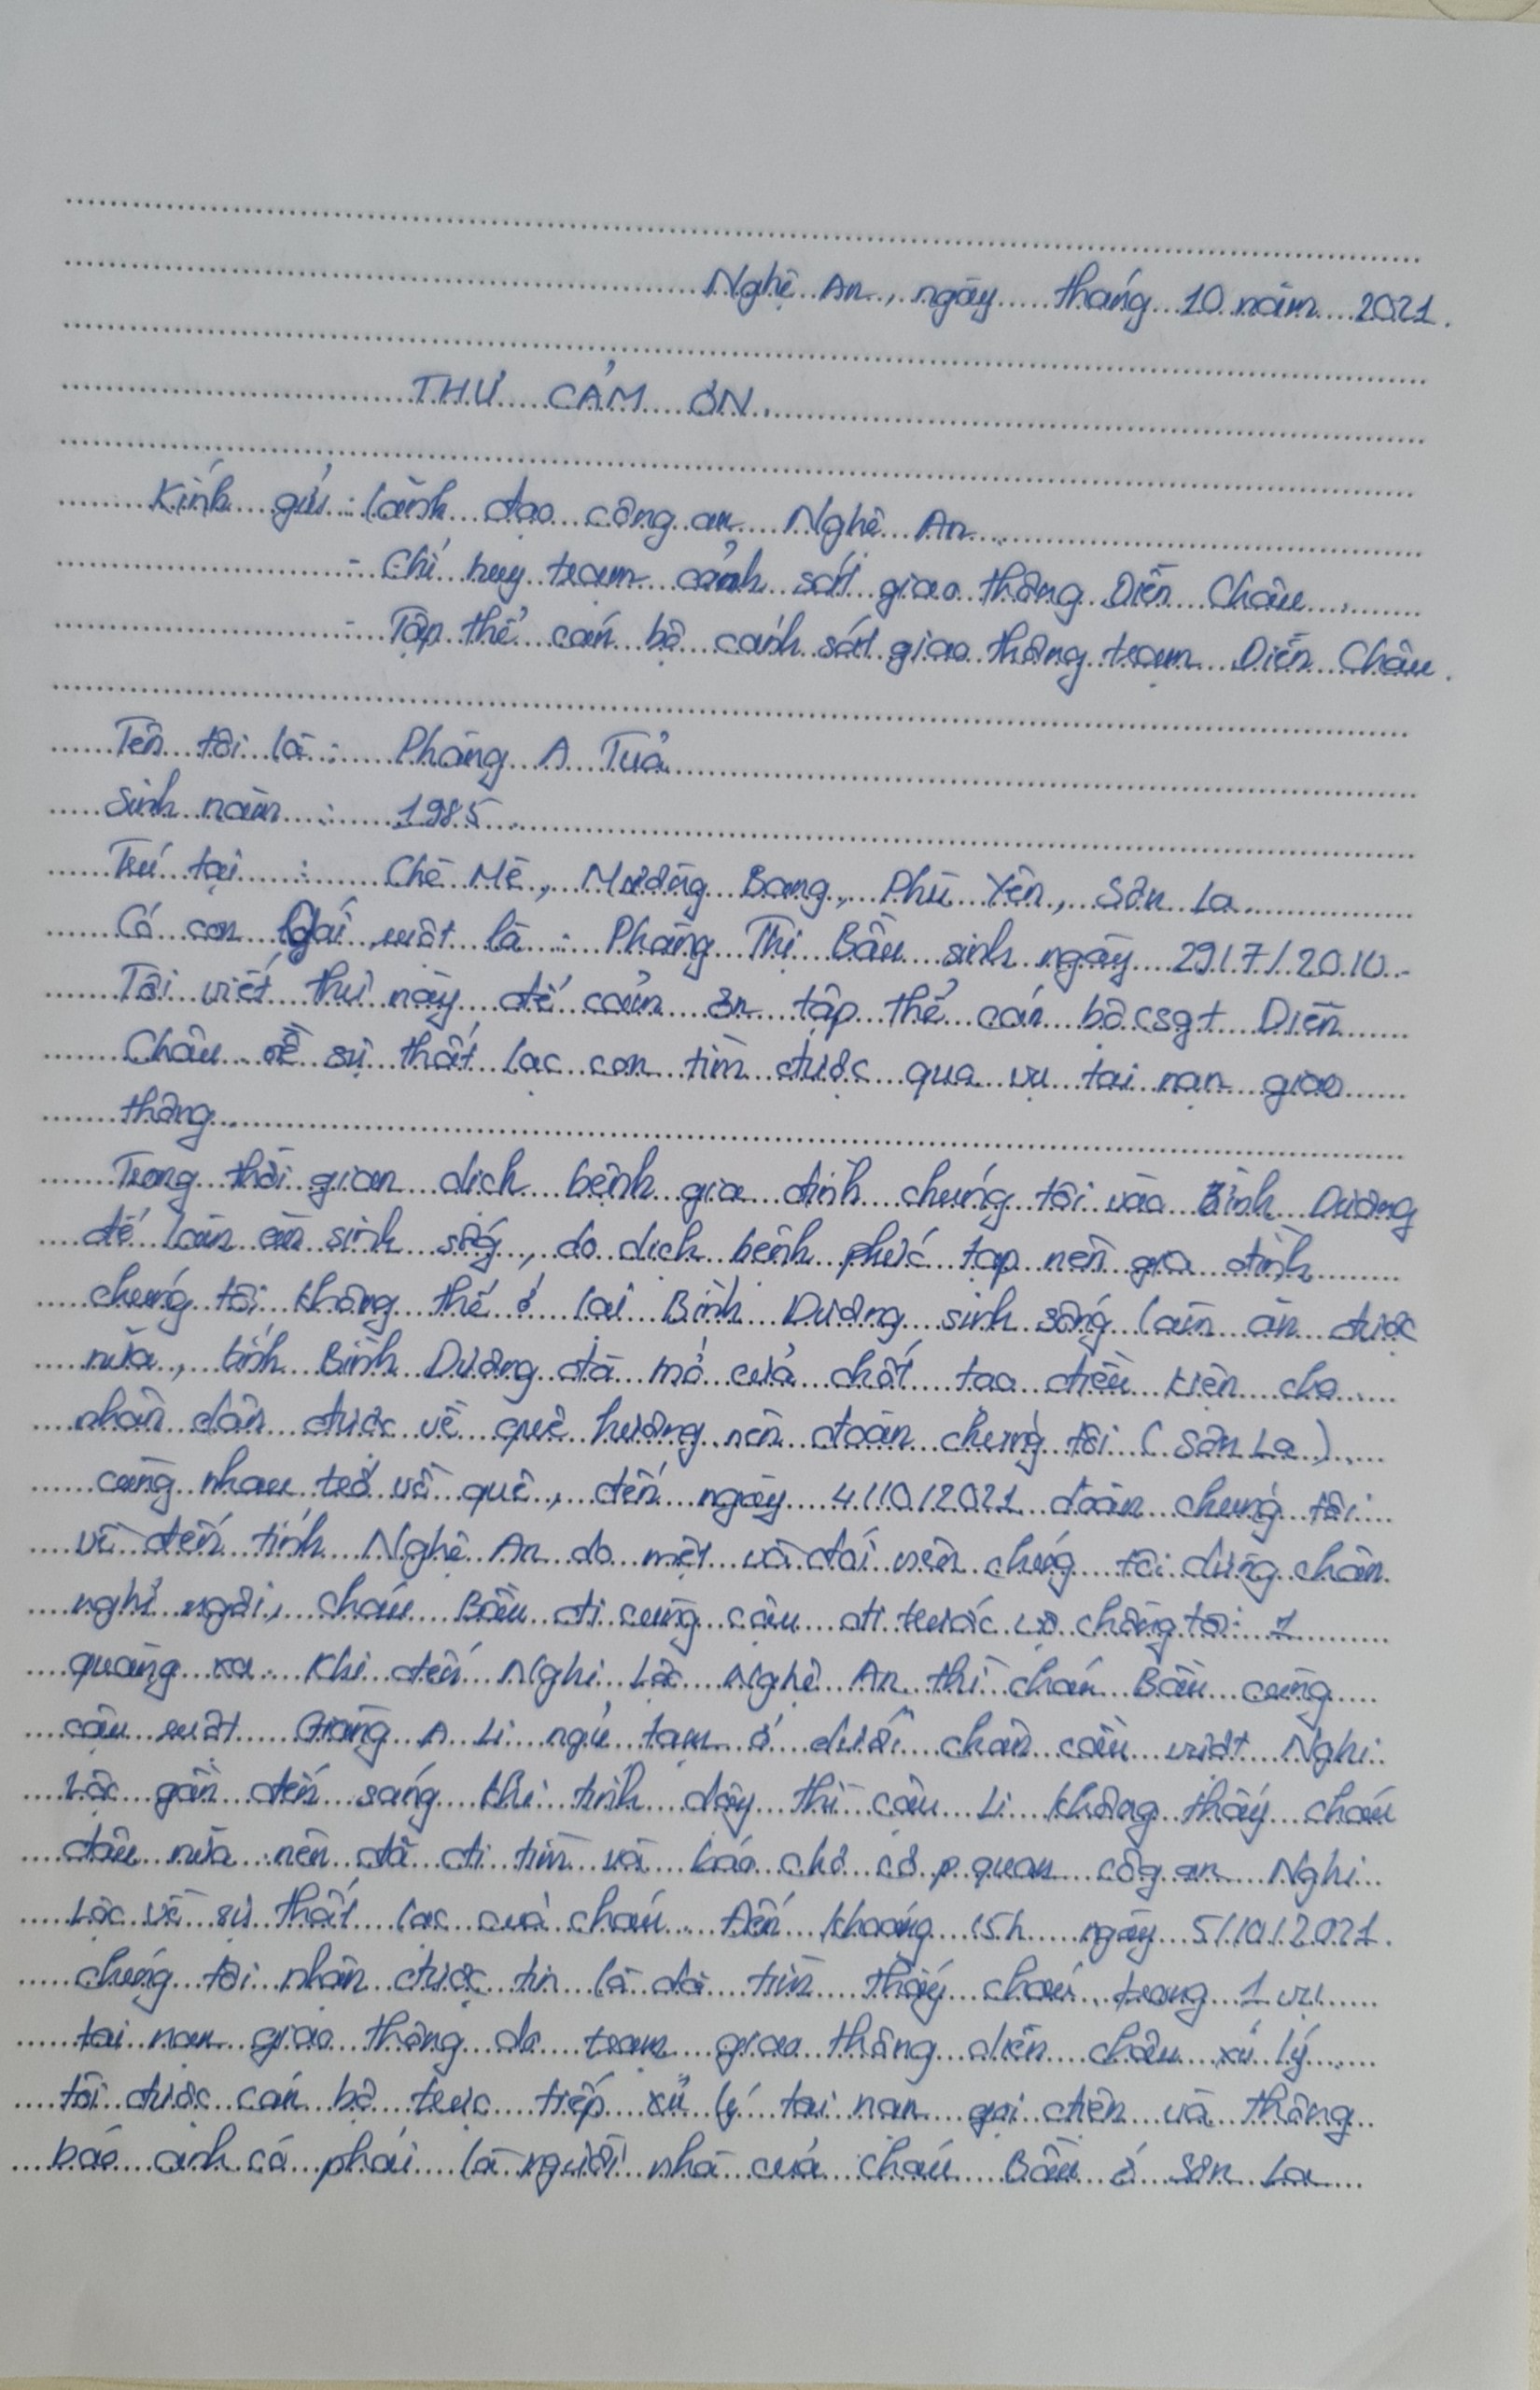 Nghệ An, ngày tháng 10 năm 2021.
THƯ CẢM ƠN
Kính gửi : lãnh đạo công an Nghệ An
- Chỉ huy trạm cảnh sát giao thông Diễn Châu
- Tập thể cán bộ cảnh sát giao thông trạm Diễn Châu.
Tên tôi là : Pháng A Tủa
Sinh năm : 1985
Trú tại : Chè Mè, Mường Bang, Phù Yên, Sơn La
Có con gái ruột là : Pháng Thị Bầu sinh ngày 29/7/2010.
Tôi viết thư này để cảm ơn tập thể cán bộ csgt Diễn
Châu về sự thất lạc con tìm được qua vụ tai nạn giao
thông
Trong thời gian dịch bệnh gia đình chúng tôi vào Bình Dương
để làm ăn sinh sống, do dịch bệnh phức tạp nên gia đình
chúng tôi không thể ở lại Bình Dương sinh sống làm ăn được
nữa, tỉnh Bình Dương đã mở cửa chốt tạo điều kiện cho
nhân dân được về quê hương nên đoàn chúng tôi (Sơn La)
cùng nhau trở về quê, đến ngày 4/10/2021 đoàn chúng tôi
về đến tỉnh Nghệ An do mệt và đói nên chúng tôi dừng chân
nghỉ ngơi, cháu Bầu đi cùng cậu đi trước vợ chồng tôi 1
quãng xa. Khi đến Nghi Lộc Nghệ An thì cháu Bầu cùng
cậu ruột Giàng A Li ngủ tạm ở dưới chân cầu vượt Nghi
Lộc gần đến sáng khi tỉnh dậy thì cậu Li không thấy cháu
đâu nữa nên đã đi tìm và báo cho cơ p quan công an Nghi
Lộc về sự thất lạc của cháu. Đến khoảng 15h ngày 5/10/2021.
chúng tôi nhận được tin là đã tìm thấy cháu trong 1 vụ
tai nạn giao thông do trạm giao thông diễn châu xử lý
tôi được cán bộ trực tiếp xử lý tai nạn gọi điện và thông
báo anh có phải là người nhà của cháu Bầu ở Sơn La